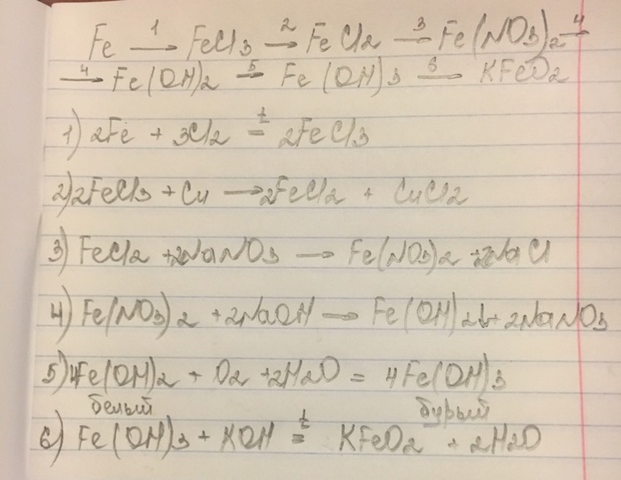 Fe —1→ FeCl3 —2→ FeCl2 —3→ Fe(NO3)2 —4→
—4→ Fe(OH)2 —5→ Fe(OH)3 —6→ KFeO2
1) 2Fe + 3Cl2 =t 2FeCl3
2) 2FeCl3 + Cu → 2FeCl2 + CuCl2
3) FeCl2 + 2NaNO3 → Fe(NO3)2 + 2NaCl
4) Fe(NO3)2 + 2NaOH → Fe(OH)2↓ + 2NaNO3
5) 4Fe(OH)2 + O2 + 2H2O = 4Fe(OH)3
белый бурый
6) Fe(OH)3 + KOH =t KFeO2 + 2H2O